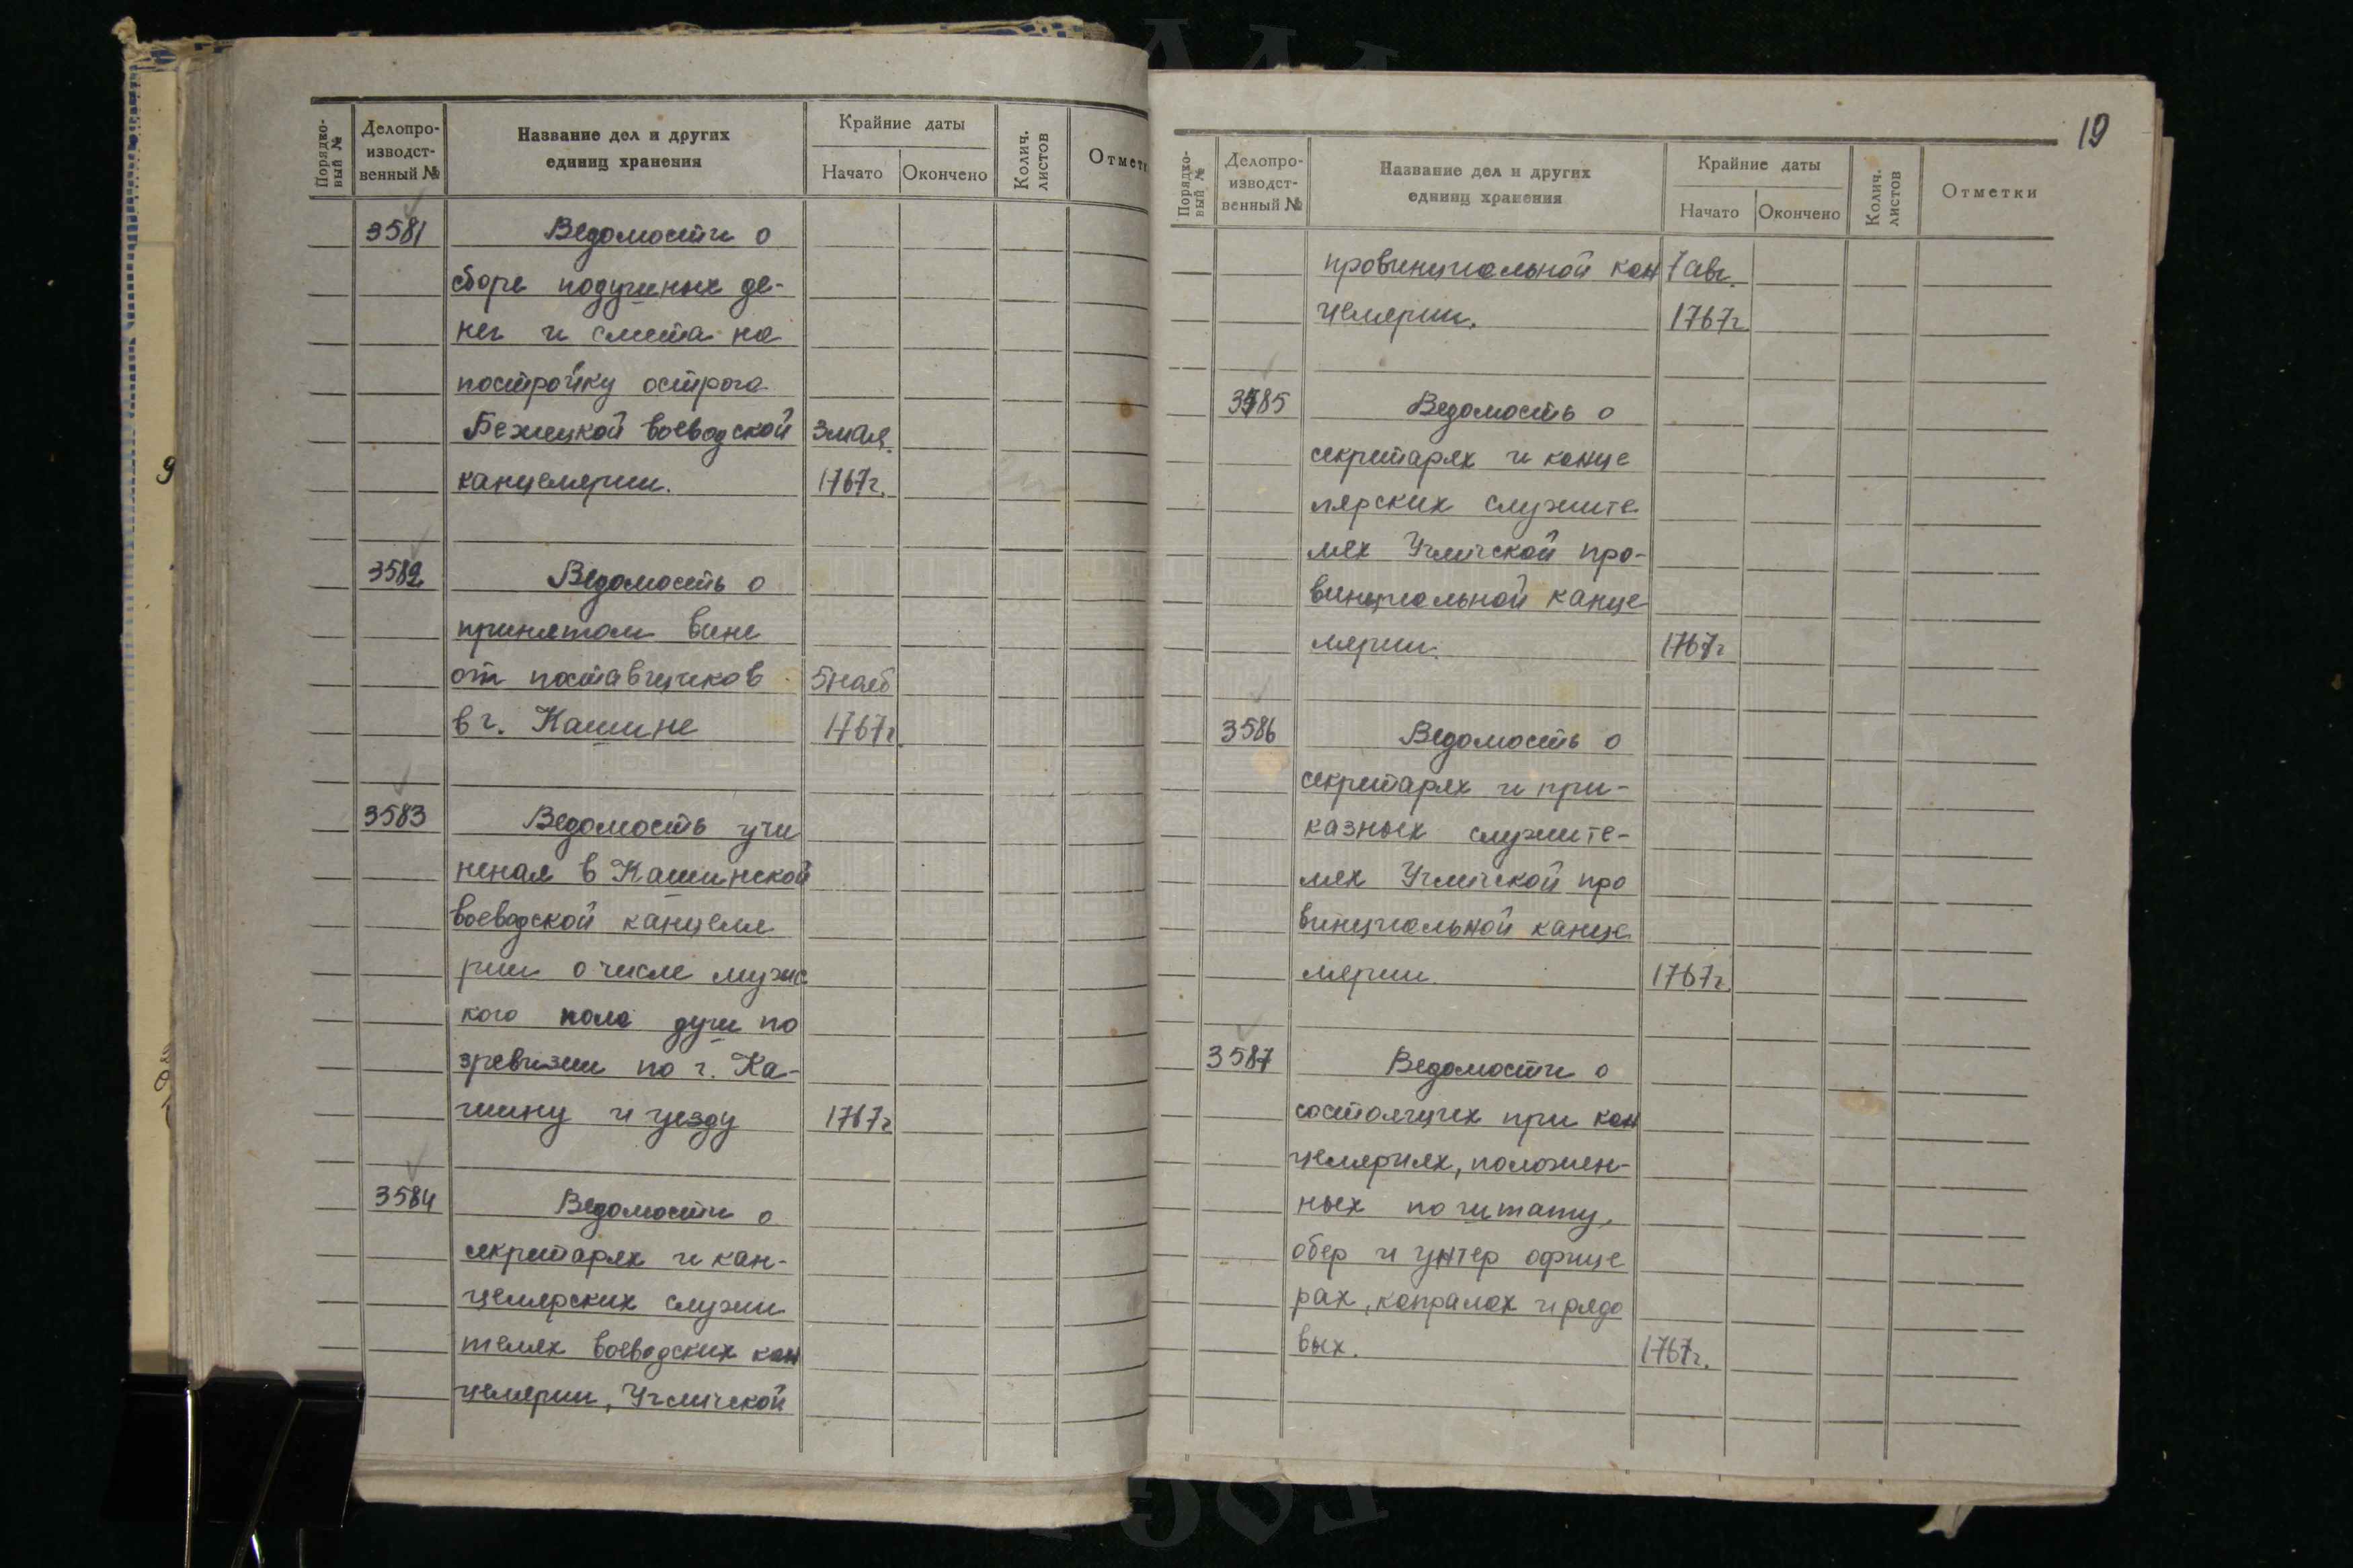 Порядко-
вый №
Делопро-
изводст-
венный №
Название дел и других
единиц хранения
Крайние даты
Начато
Окончено
Колич.
листов
Отметк
3581
Ведомости о
сборе подушных де-
нег и смета на
постройку острога
Бежецкой воеводской 3 мая
канцелярии. 1767г.
3582
Ведомость о
принятом вине
от поставщиков 5 нояб
в г. Кашине 1767г.
3583
Ведомость учи
неная в Кашинской
воеводской канцеля
рии о числе мужс
кого пола душ по
3 ревизии по г. Ка-
шину и уезду 1767г
3584
Ведомости о
секретарях и кан-
целярских служи
телях воеводских кан
целярии, Угличской
19
Порядко-
вый №
Делопро-
изводст-
венный №
Название дел и других
единиц хранения
Крайние даты
Начато
Окончено
Колич.
листов
Отметки
провинциальной кан 7 авг.
целярии. 1767г
3585
Ведомость о
секретарях и канце
лярских служите
лях Угличской про-
винциальной канце
лярии. 1767г
3586
Ведомость о
секретарях и при-
казных служите-
лях Угличской про
винциальной канце
лярии. 1767г
3587
Ведомости о
состоящих при кан
целяриях, положен-
ных по штату,
обер и унтер офице
рах, капралах и рядо
вых. 1767г.